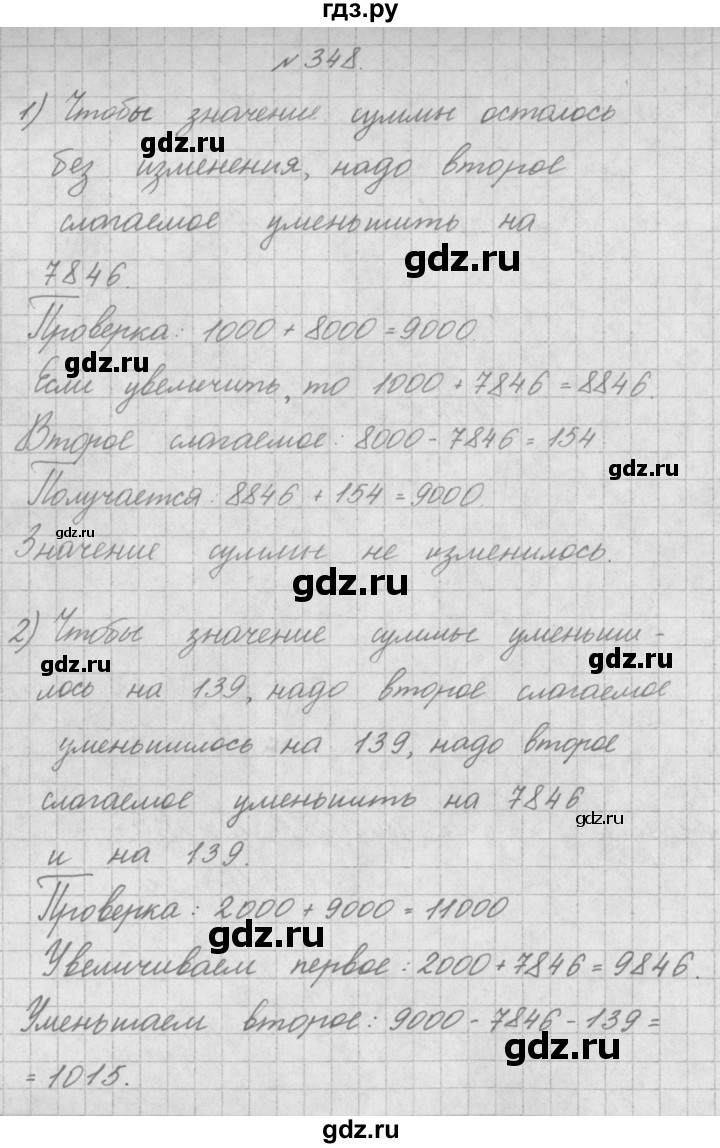 гдз.ру
№ 348.
1) Чтобы значение суммы осталось
gdz.ru
без изменения, надо второе
слагаемое уменьшить на
gdz.ru
7846.
Проверка: 1000 + 8000 = 9000.
gdz.ru
Если увеличить, то 1000 + 7846 = 8846.
Второе слагаемое: 8000 - 7846 = 154
gdz.ru
Получается: 8846 + 154 = 9000.
gdz.ru
Значение суммы не изменилось.
gdz.ru
2) Чтобы значение суммы уменьши -
gdz.ru
gdz.ru
лось на 139, надо второе слагаемое
уменьшилось на 139, надо второе
слагаемое уменьшить на 7846
gdz.ru
и на 139.
Проверка: 2000 + 9000 = 11000
gdz.ru
Увеличиваем первое: 2000 + 7846 = 9846.
Уменьшаем второе: 9000 - 7846 - 139 =
gdz.ru
= 1015.
гдз.ру